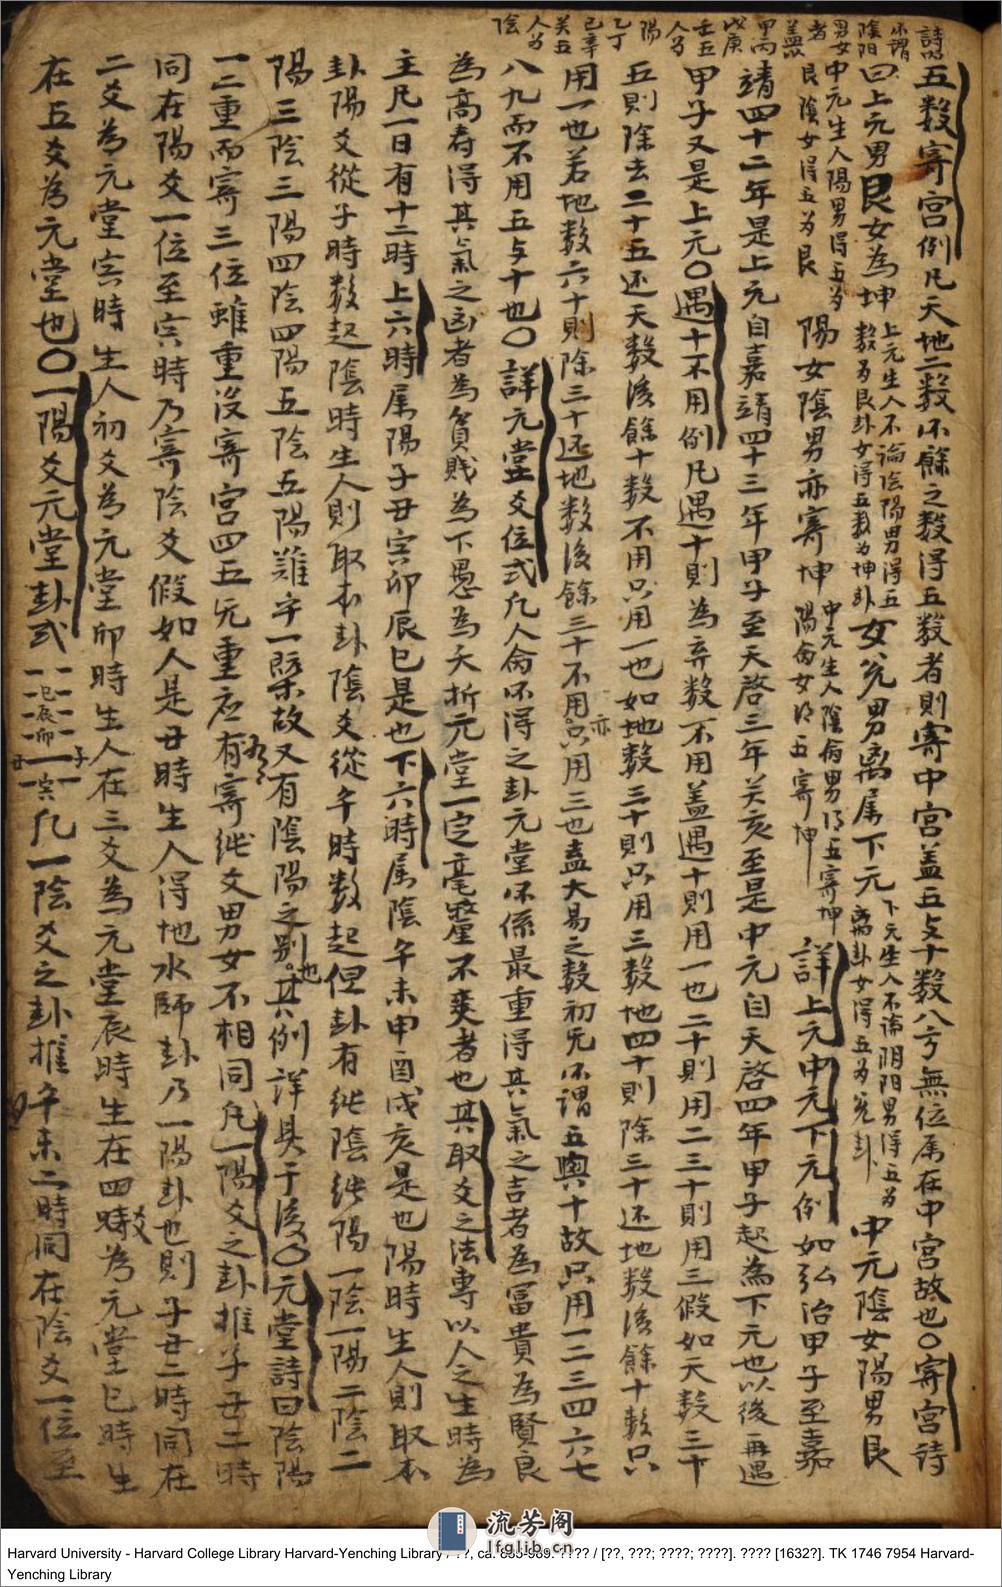 詩所謂陰陽男女者蓋甲丙戊庚壬五陽人為乙丁己辛癸五陰人為
五数寄宮例凡天地二数所餘之数得五数者則寄中宮盖五与十数八方無位属在中宮故也〇寄宮诗
曰上元男艮女為坤 上元生人不論陰陽男得五数為艮卦女得五数為坤卦 女兊男离属下元 下元生人不論阴阳男得五为离卦女得五为兊卦 中元陰女陽男艮
中元生人陽男得五为艮陰女得五为艮 陽女陰男亦寄坤 中元生人陰命男得五寄坤陽命女得五寄坤 詳上元中元下元例如弘治甲子至嘉
靖四十二年是上元自嘉靖四十三年甲子至天啓三年癸亥至是中元自天啓四年甲子起為下元也以後再遇
甲子又是上元〇遇十不用例凡遇十則為弃数不用盖遇十則用一也二十則用二三十則用三假如天数三十
五則除去二十五还天数後餘十数不用只用一也如地数三十則只用三数地四十則除三十还地数後餘十数只
用一也若地数六十則除三十还地数後餘三十不用只用三也盖大易之数初无所謂五與十故只用一二三四六七
八九而不用五与十也〇詳元堂爻位式凡人命所得之卦元堂所係最重得其氣之吉者為富貴為賢良
為高寿得其氣之凶者為貧賎為下愚為夭折元堂一定毫釐不爽者也其取爻之法專以人之生時為
主凡一日有十二時上六時属陽子丑寅卯辰巳是也下六時属陰午未申酉戌亥是也陽時生人則取本
卦陽爻從子時数起陰時生人則取本卦陰爻從午時数起但卦有純陰純陽一陰一陽二陰二
陽三陰三陽四陰四陽五陰五陽難守一槩故又有陰陽之别也其例詳具于後〇元堂詩曰陰陽
一二重而寄三位雖重没寄宮四五无重应有寄純爻男女不相同凡一陽爻之卦推子丑二時
同在陽爻一位至寅時乃寄陰爻假如人是丑時生人得地水師卦乃一陽卦也則子丑二時同在
二爻為元堂寅時生人初爻為元堂卯時生人在三爻為元堂辰時生在四爻為元堂巳時生
在五爻為元堂也〇一陽爻元堂卦式 巳辰卯子丑寅 凡一陰爻之卦推午未二時同在陰爻一位至
流芳阁
lfglib.cn
Harvard University - Harvard College Library Harvard-Yenching Library / ??, ca. 885-989. ???? / [??, ???; ????; ????]. ???? [1632?]. TK 1746 7954 Harvard-
Yenching Library